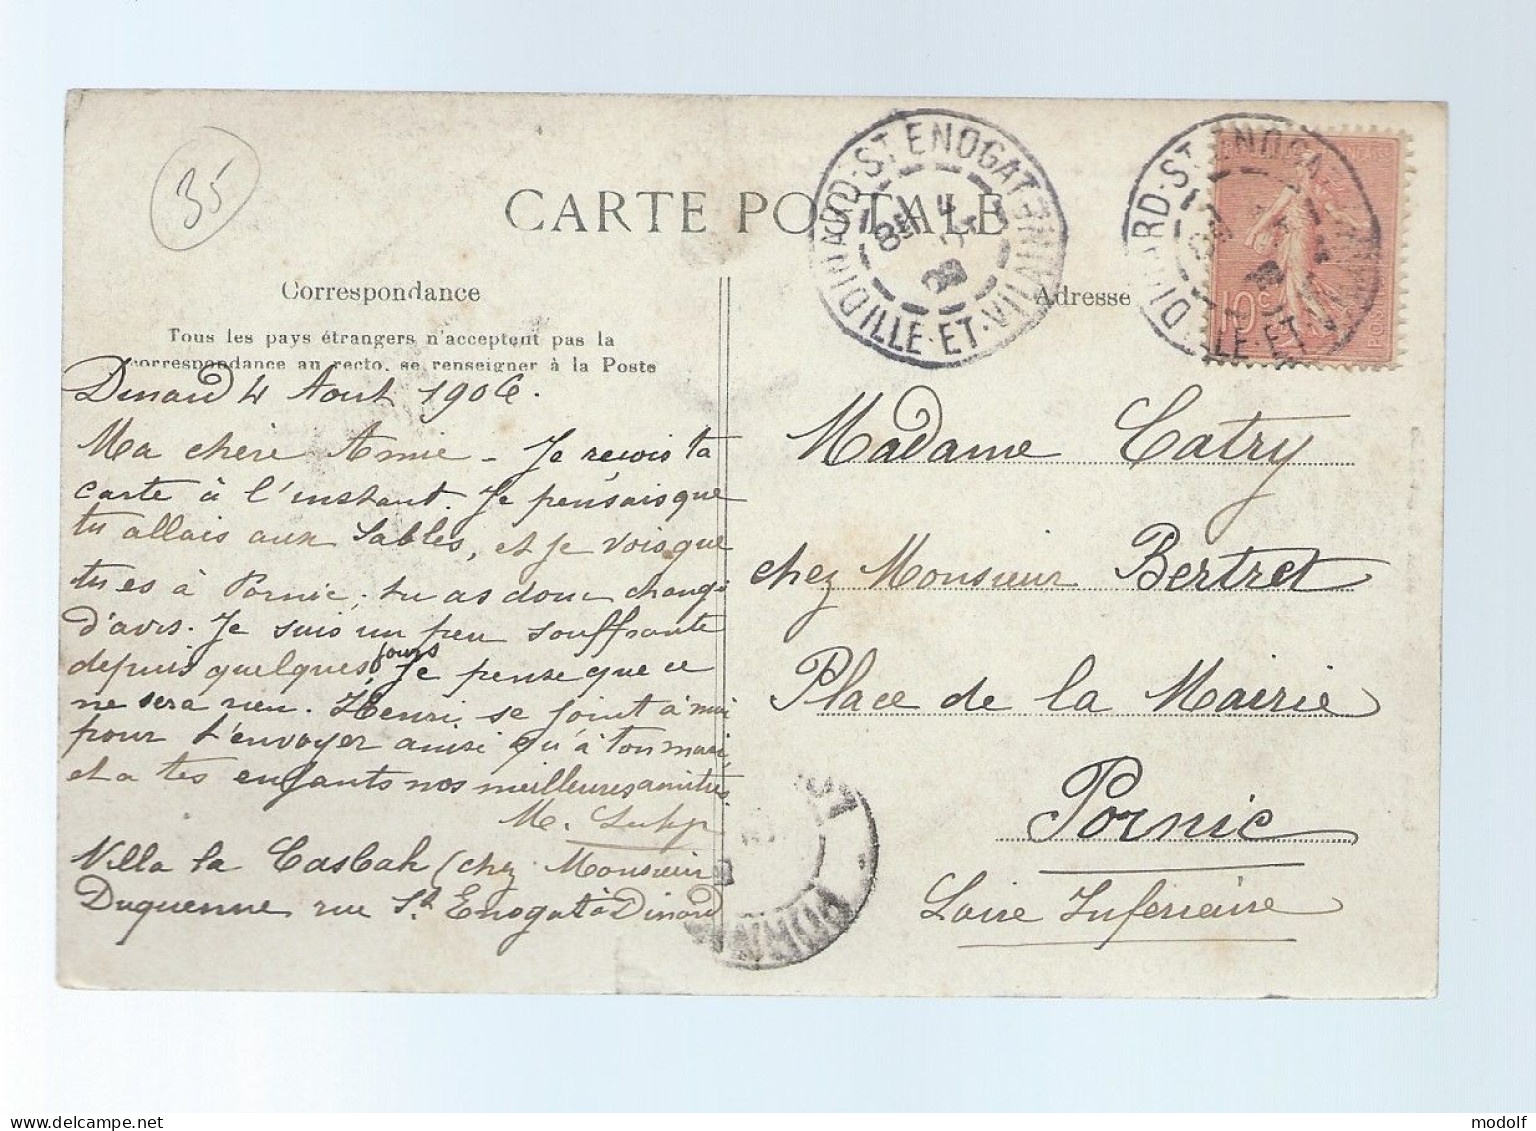 35
CARTE POSTALE
Correspondance
Tous les pays étrangers n'acceptent pas la
correspondance au recto, se renseigner à la Poste
Dinard 4 Aout 1906.
Ma chère Amie – Je reçois ta
carte à l'instant. Je pensais que
tu allais aux Sables, et je vois que
tu es à Pornic, tu as donc changé
d'avis. Je suis un peu souffrante
depuis quelques jours, Je pense que ce
ne sera rien. Henri se joint à moi
pour t'envoyer ainsi qu'à ton mari,
et a tes enfants nos meilleures amitiés.
M.
Villa la Casbah (chez Monsieur
Duquenne rue St Enogat à Dinard
DINARD-ST ENOGAT
ILLE-ET-VILAINE
DINARD-ST ENOGAT
ILLE-ET-
10c
POSTES
Adresse
Madame Catry
chez Monsieur Bertret
Place de la Mairie
Pornic
Loire Inférieure
delcampe.net
modolf